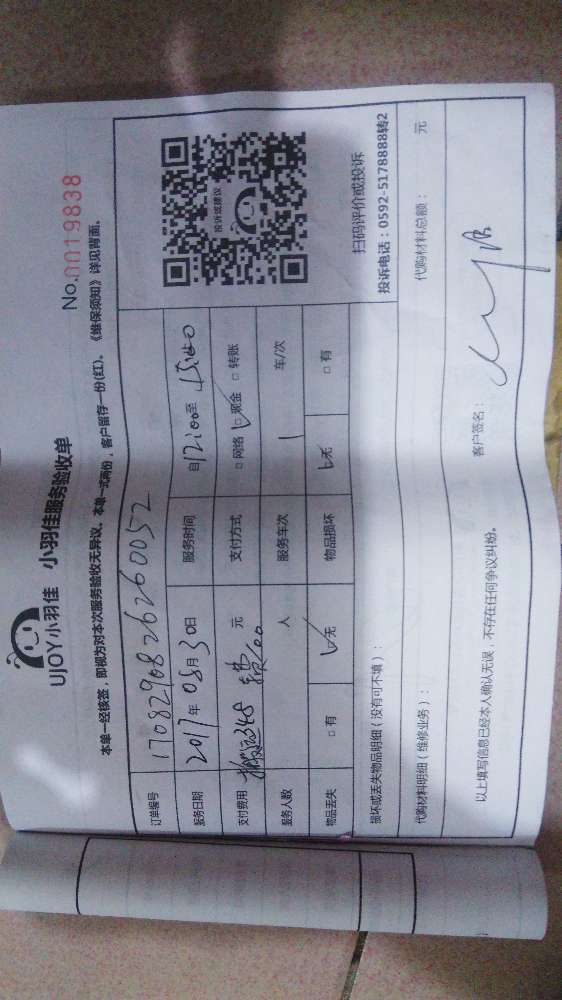 UJOY小羽佳 小羽佳服务验收单
No.0019838
本单一经核签，即视为对本次服务验收无异议。本单一式两份，客户留存一份(红)。《维保须知》详见背面。
订单编号 1708290826260052
服务日期 2017年08月30日 服务时间 自12:00至15:40
支付费用 元 支付方式 □网络 □现金 □转账
服务人数 人 服务车次 1 车/次
物品丢失 □有 □无 物品损坏 □无 □有
投诉或建议
扫码评价或投诉
投诉电话：0592-5178888转2
损坏或丢失物品明细（没有可不填）：
代购材料明细（维修业务）： 代购材料总额： 元
以上填写信息已经本人确认无误，不存在任何争议纠纷。
客户签名：